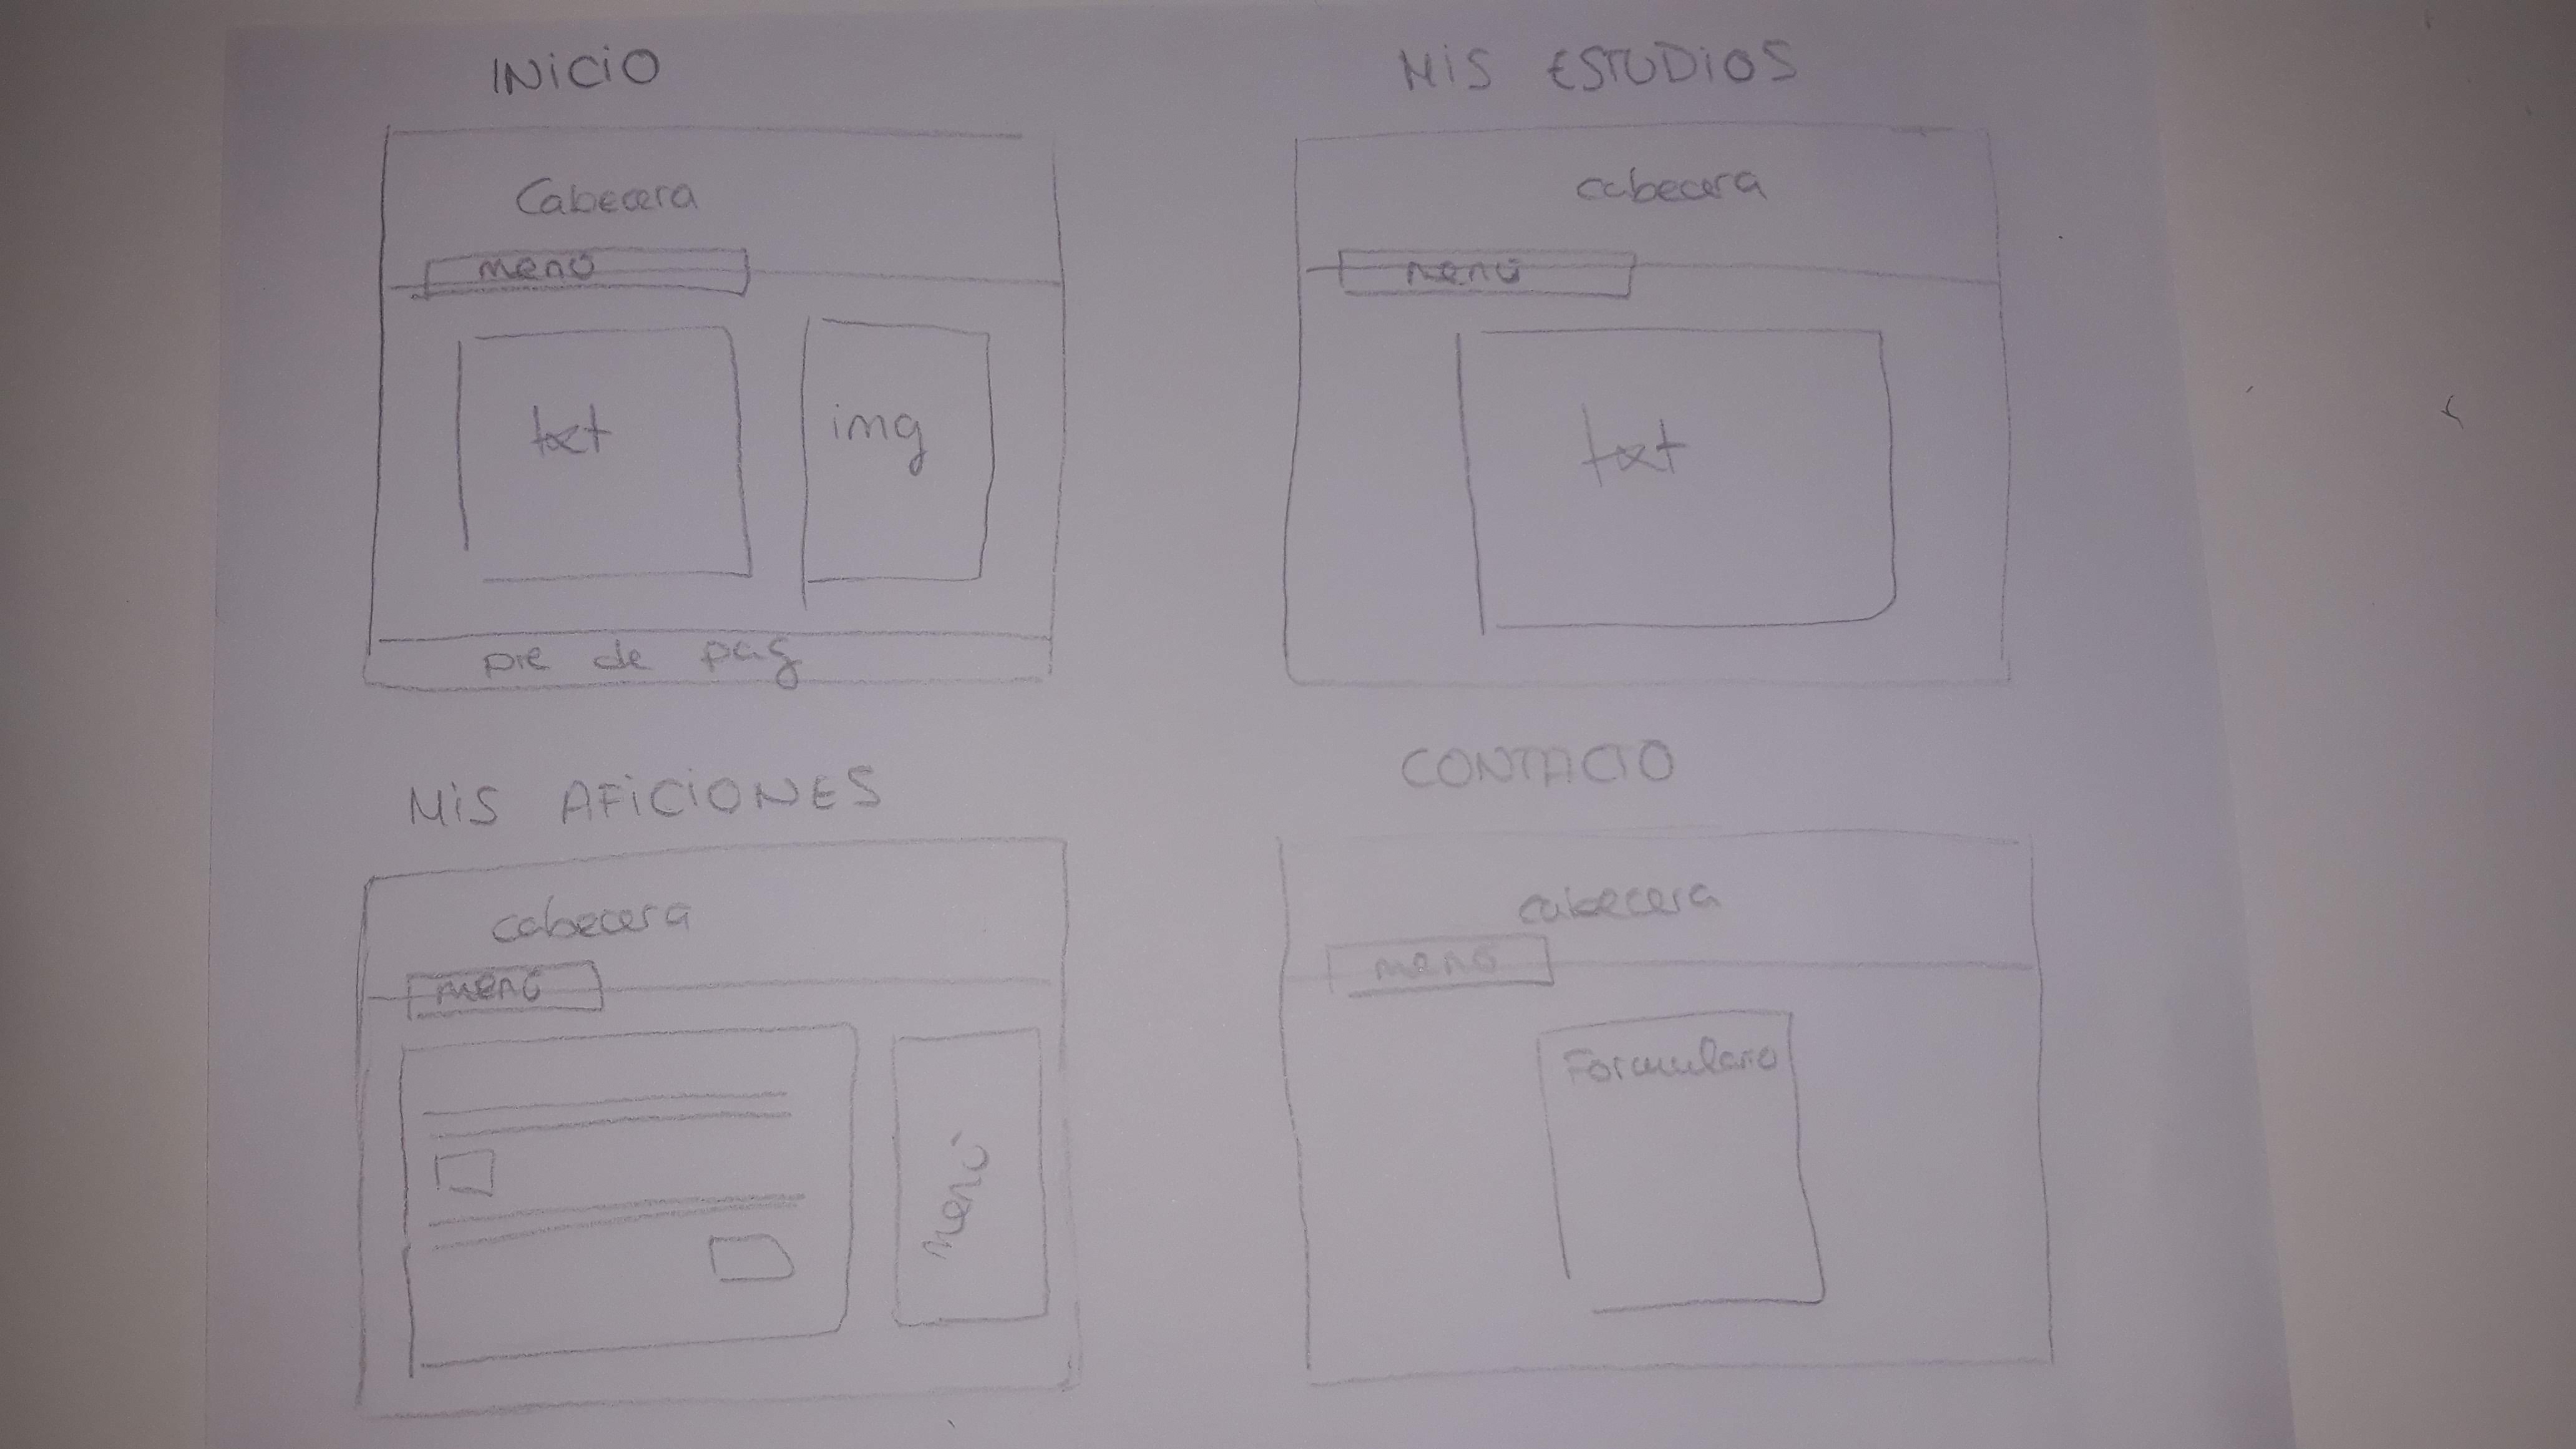 INICIO
Cabecera
menú
txt
img
pie de pag
MIS ESTUDIOS
cabecera
menú
txt
MIS AFICIONES
cabecera
menú
menú
CONTACTO
cabecera
menú
Formulario